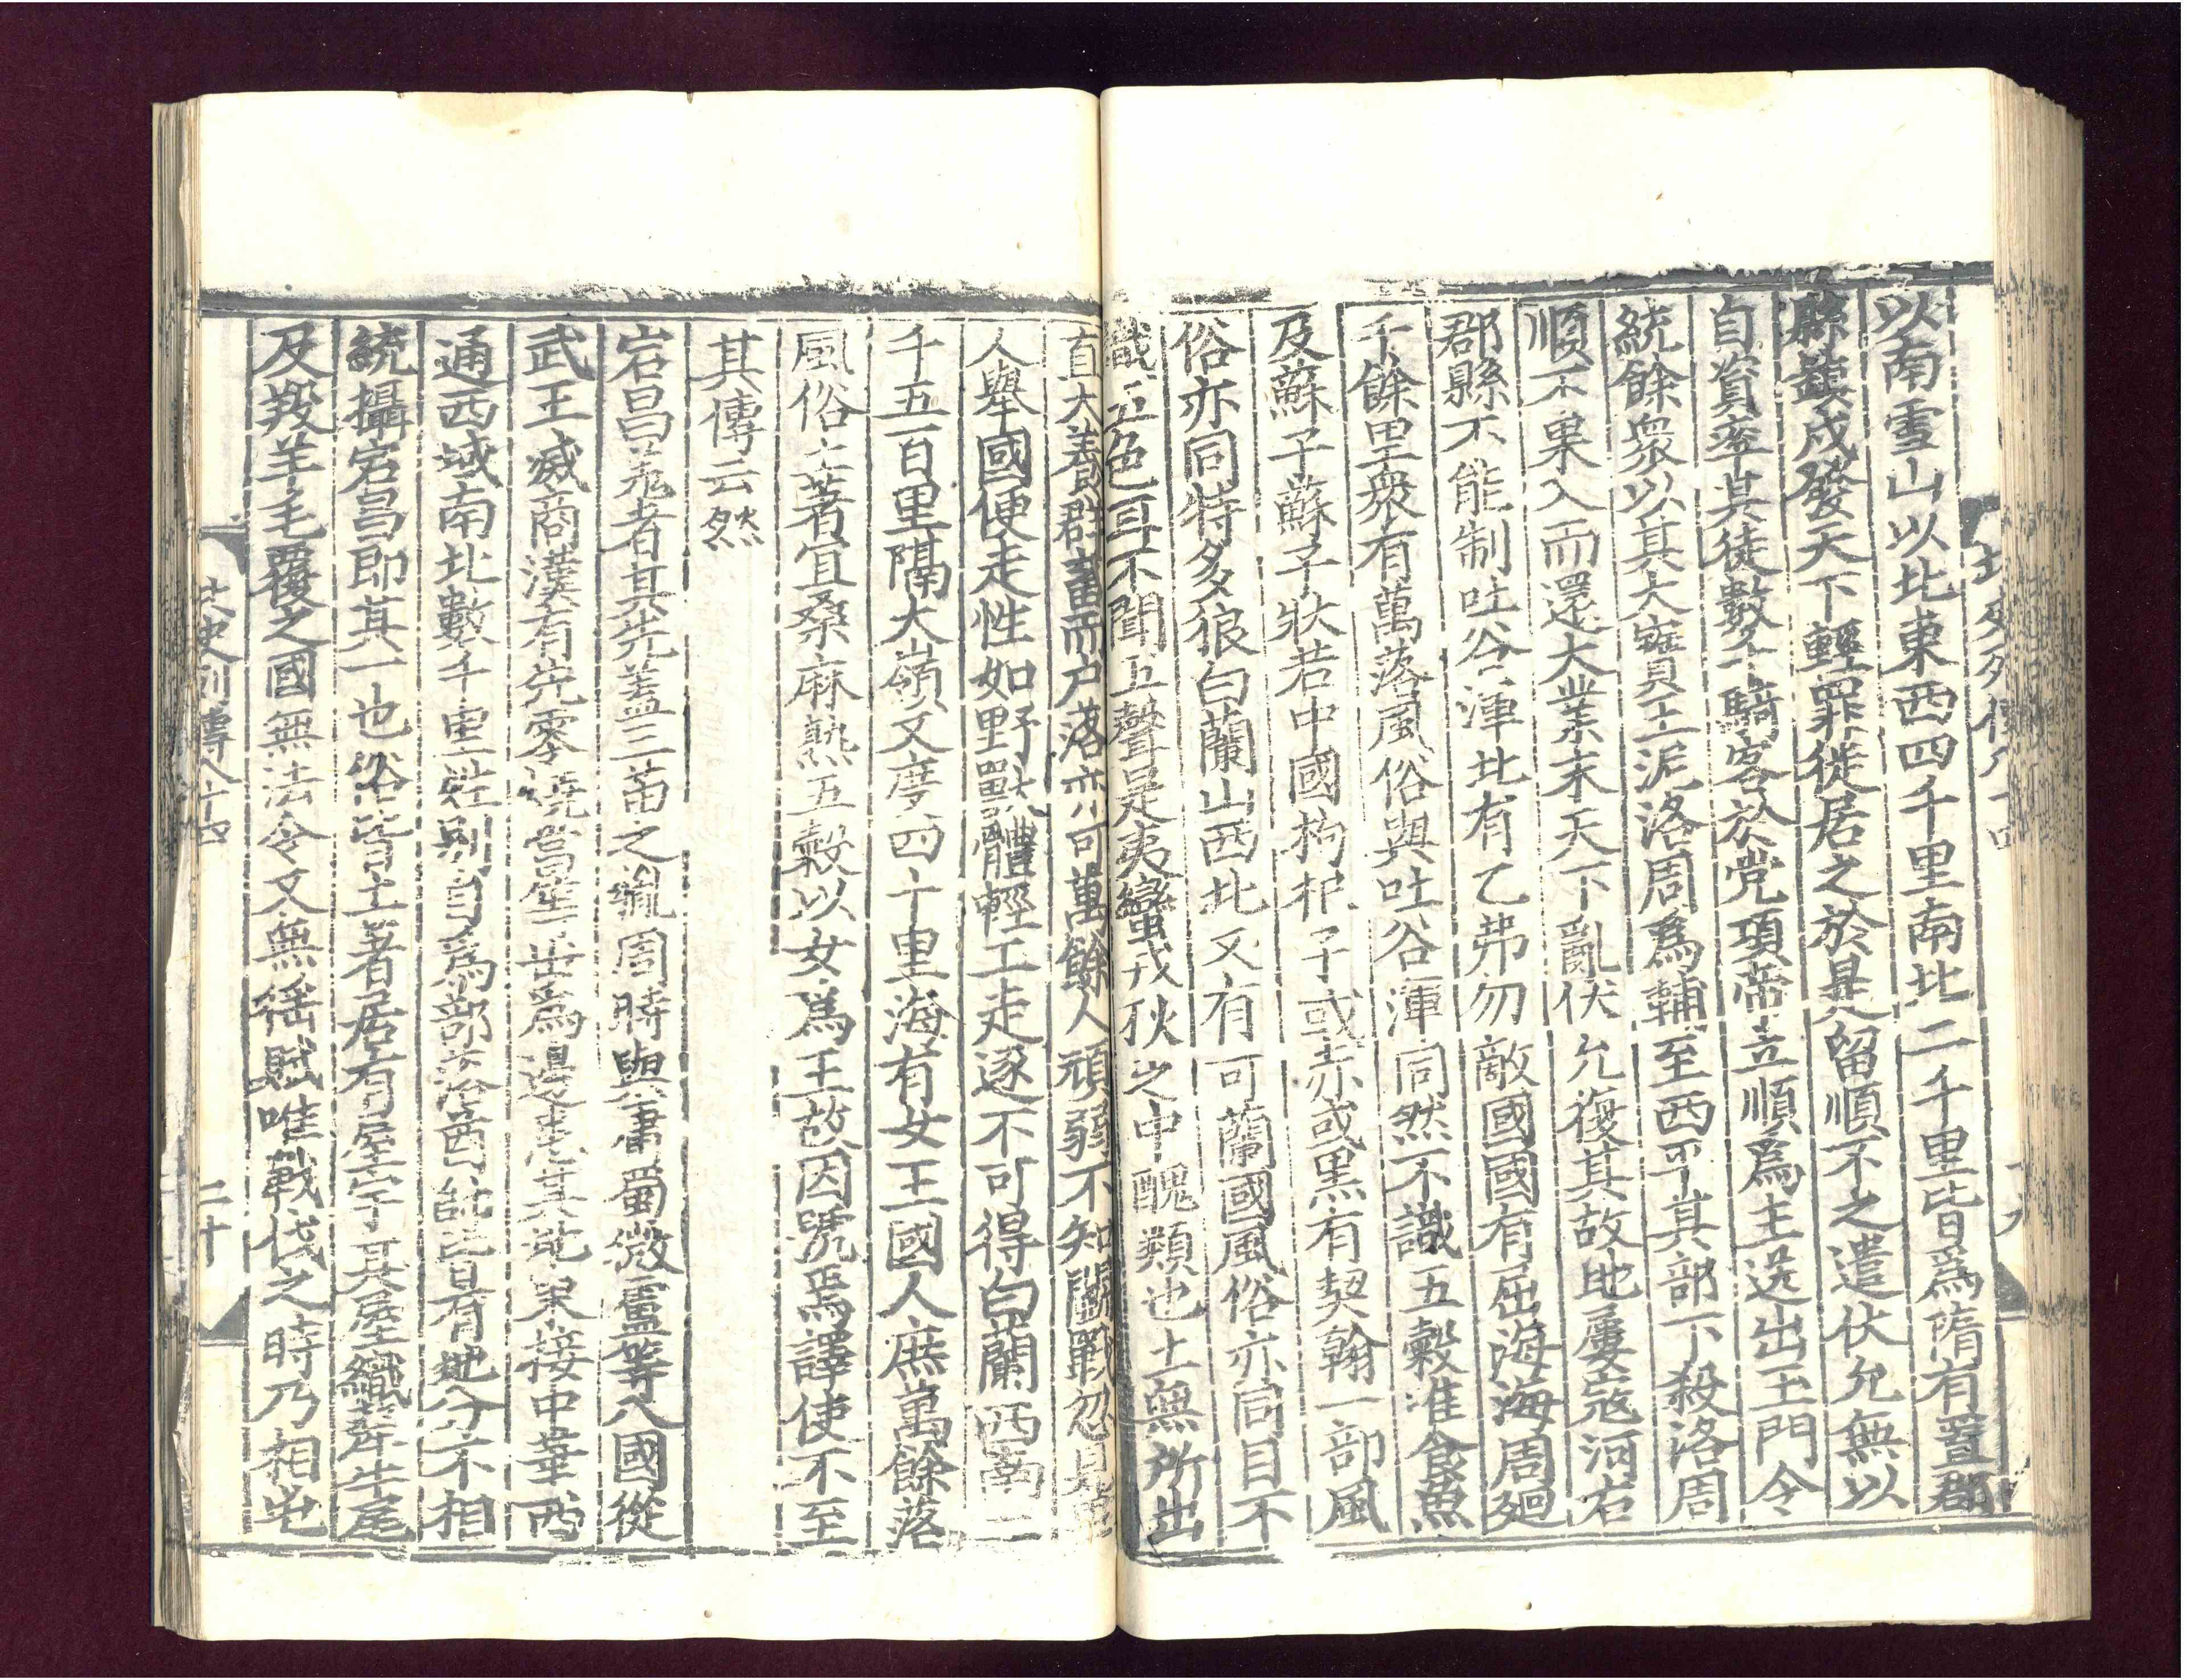 以南雪山以北東西四千里南北二千里皆爲隋有置郡
縣鎮戍發天下輕罪徙居之於是留順不之遣伏允無以
自資率其徒數千騎客於党項帝立順爲主送出玉門令
統餘衆以其大寶王泥洛周爲輔至西平其部下殺洛周
順不果入而還大業末天下亂伏允復其故地屢寇河右
郡縣不能制吐谷渾北有乙弗勿敵國國有屈海海周廻
千餘里衆有萬落風俗與吐谷渾同然不識五穀唯食魚
及蘇子蘇子狀若中國枸杞子或赤或黑有契翰一部風
俗亦同特多狼白蘭山西北又有可蘭國風俗亦同目不
識五色耳不聞五聲是夷蠻戎狄之中醜類也土無所出
直大養群畜而户落亦可萬餘人頑弱不知鬭戰忽見異
人舉國便走性如野獸體輕工走逐不可得白蘭西南二
千五百里隔大嶺又度四十里海有女王國人庶萬餘落
風俗土著宜桑麻熟五穀以女爲王故因號焉譯使不至
其傳云然
宕昌羌者其先蓋三苗之胤周時與庸蜀微盧等八國從
武王滅商漢有先零燒當等世爲邊患其地東接中華西
通西域南北數千里姓别自爲部落酋帥皆有地分不相
統攝宕昌即其一也俗皆土著居有屋宇其屋織犛牛尾
及羖羊毛覆之國無法令又無徭賦唯戰伐之時乃相屯
北史列傳八十四
二十